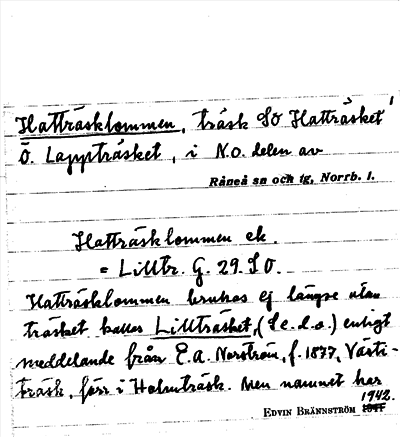 Hatträsklommen, träsk SO Hatträsket
Ö. Lappträsket, i N.O. delen av
Råneå sn och tg, Norrb. l.
Hatträsklommen ek.
= Lilltr. G. 29. S O.
Hatträsklommen brukas ej längre utan
träsket kallas Lillträsket, (Se d. o.) enligt
meddelande från E. A. Norström, f. 1877, Västi-
träsk, förr i Holmträsk. Men namnet har
1942.
EDVIN BRÄNNSTRÖM 1941